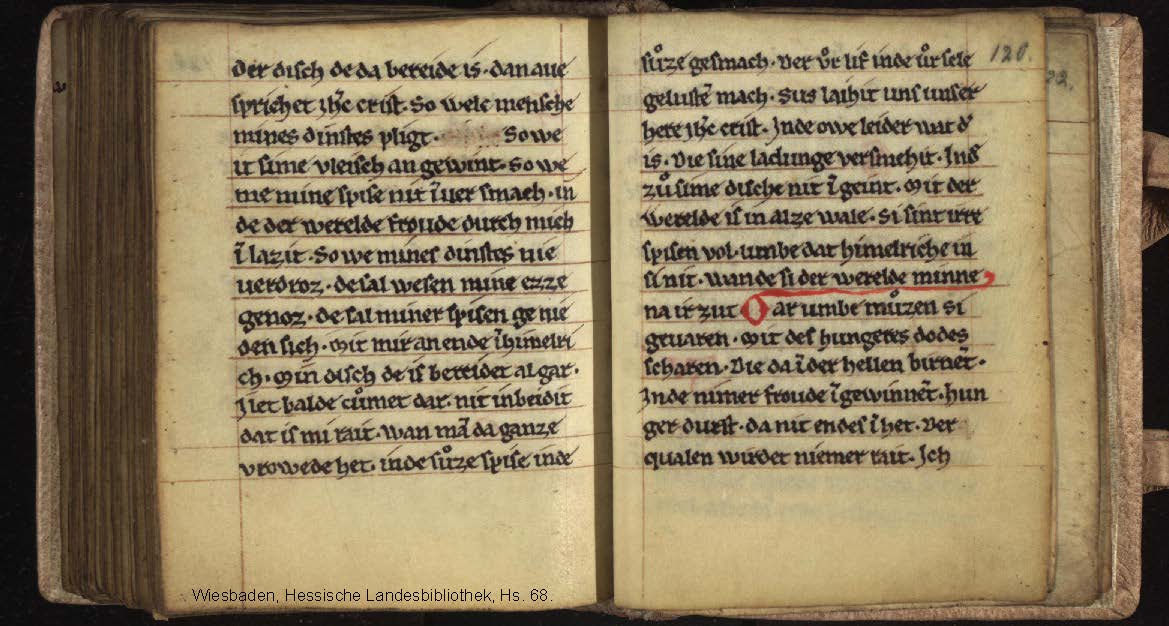 der disch de da bereide is · dan aue
sprichet ih̄c crist. So welc mensche
mines dinstes pligt. So we
it sime vleisch an gewint. So we
me mine spise nit ī uer smach · in
de der werelde froude durch mich
ī lazit · So we mines dinstes nie
uerdroz · de sal wesen mine ezze
genoz · de sal miner spisen ge nie
den sich · Mit mir an ende ī himelri
ch · Min disch de is bereidet al gar ·
Jlet balde cůmet dar · nit inbeidit
dat is mi rait · wan mā da ganze
vrowede het · inde sůze spise inde
120.
sůze gesmach · Der ůr lif inde ůr sele
gelustē mach · Sus laihit uns unser
here ih̄c crist · Jnde owe leider wat d̄
is · Die sine ladunge versmehit · Jnd̄
zů sime dische nit ī geint · Mit der
werelde is in alze wale · Si sint irre
spisen vol · umbe dat himelriche in
si nit · wande si der werelde minne
na ir zut Dar umbe můzen si
geuaren · Mit des hungeres dodes
scharen · Die da ī der hellen birnēt ·
Jnde nimer froude ī gewinnēt · hun
ger durst · da nit endes ī het · Der
qualen wirdet niemer rait · Jch
Wiesbaden, Hessische Landesbibliothek, Hs. 68.